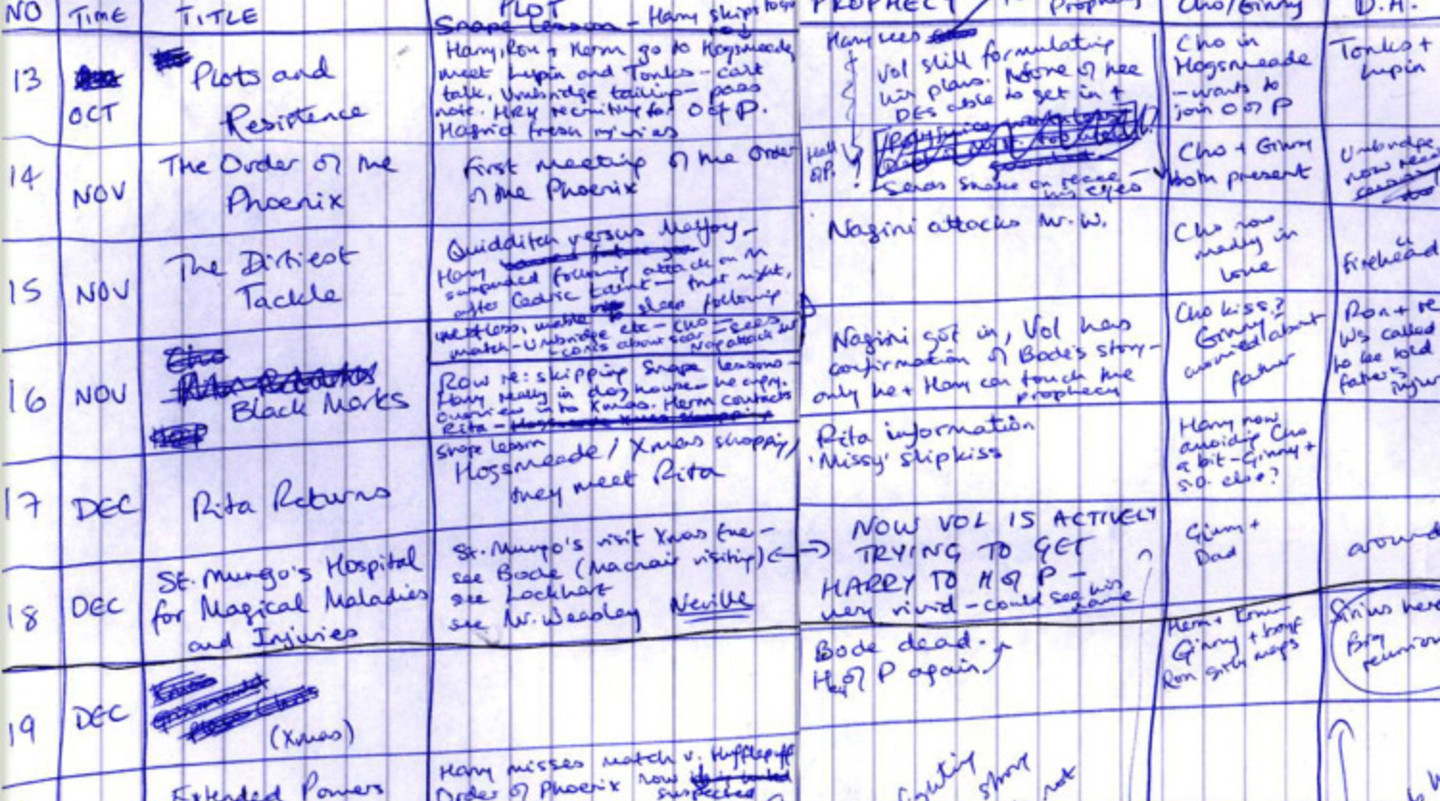 NO TIME TITLE PLOT PROPHECY Cho/Ginny D.A.
Snape lesson - Harry skips
13
OCT
Plots and
Resistence
Harry, Ron + Herm go to Hogsmeade,
meet Lupin and Tonks - can't
talk, Umbridge tailing - pass
note. HRH recruiting for O of P.
Hagrid fresh injuries
Harry sees
Vol still formulating
his plans. None of nee
DEs able to get in +
Cho in
Hogsmeade
- wants to
join O of P
Tonks +
Lupin
14
NOV
The Order of the
Phoenix
First meeting of the Order
of the Phoenix
Hall
of P.
!
Sends snake on recce -
his eyes
Cho + Ginny
both present
Umbridge
now
15
NOV
The Dirtiest
Tackle
Quidditch versus Malfoy -
Harry
suspended following attack on M
after Cedric taunt - that night,
restless, unable sleep following
match - Umbridge etc - Cho -
sees
Nag attack
Nagini attacks Mr. W.
Cho now
madly in
love
Firehead
16
NOV
Black Marks
Row re: skipping Snape lessons -
Harry really in dog house - he angry.
is to Xmas. Herm contacts
Rita -
Nagini got in, Vol has
confirmation of Bode's story -
only he + Harry can touch the
prophecy
Cho kiss?
Ginny
worried about
father
Ron + re
Ws called
to be told
father's
injur
17
DEC
Rita Returns
Snape lesson
Hogsmeade / Xmas shopping,
they meet Rita
Rita information
'Missy' skip kiss
Harry now
avoiding Cho
a bit - Ginny +
s.o. else?
18
DEC
St. Mungo's Hospital
for Magical Maladies
and Injuries
St. Mungo's visit Xmas Eve -
see Bode (Macnair visiting)
see Lockhart
see Mr. Weasley Neville
NOW VOL IS ACTIVELY
TRYING TO GET
HARRY TO H of P -
very vivid - could see his
name
Ginny +
Dad
around
19
DEC
(Xmas)
Bode dead.
H of P again
Herm + Krum
Ginny +
Ron
Sirius here
Big
reunion
Extended Powers
Harry misses match v. Hufflepuff
Order of Phoenix now
suspected